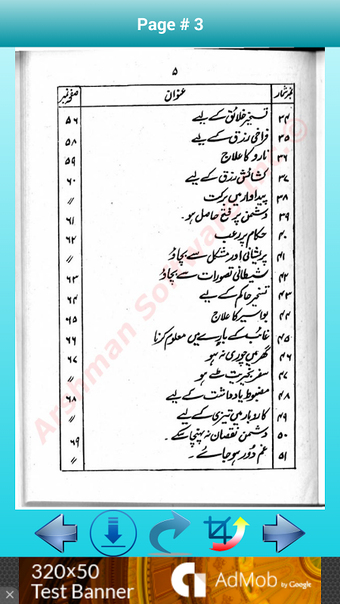 Page # 3
۵
نمبر شمار عنوان صفحہ نمبر
۳۴ تسخیر خلائق کے لیے ۵۶
۳۵ فراخی رزق کے لیے ۵۸
۳۶ نارو کا علاج ۵۹
۳۷ کشائش رزق کے لیے ۶۰
۳۸ پیداوار میں برکت //
۳۹ دشمن پر فتح حاصل ہو۔ ۶۱
۴۰ حکام پر رعب ۶۲
۴۱ پریشانی اور مشکل سے بچاؤ //
۴۲ شیطانی تصورات سے بچاؤ ۶۳
۴۳ تسخیر حاکم کے لیے ۶۴
۴۴ بواسیر کا علاج ۶۵
۴۵ غائب کے بارے میں معلوم کرنا ۶۶
۴۶ گھر میں چوری نہ ہو ۶۷
۴۷ سفر بخیریت طے ہو //
۴۸ مضبوط یادداشت کے لیے ۶۸
۴۹ کاروبار میں تیزی کے لیے //
۵۰ دشمن نقصان نہ پہنچا سکے۔ ۶۹
۵۱ غم دور ہو جائے۔ //
320x50
Test Banner
AdMob by Google